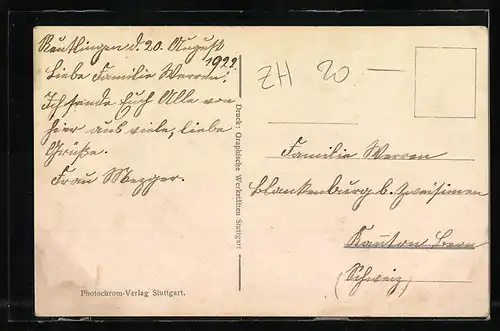 Reutlingen d. 20. August
1922.
Liebe Familie Werren!
Ich sende Euch Alle von
hier aus viele, liebe
Grüße.
Frau Mezger.
Photochrom-Verlag Stuttgart.
Druck: Graphische Werkstätten Stuttgart
ZH 20 —
Familie Werren
Blankenburg b. Zweisimen
Kanton Bern
(Schweiz)